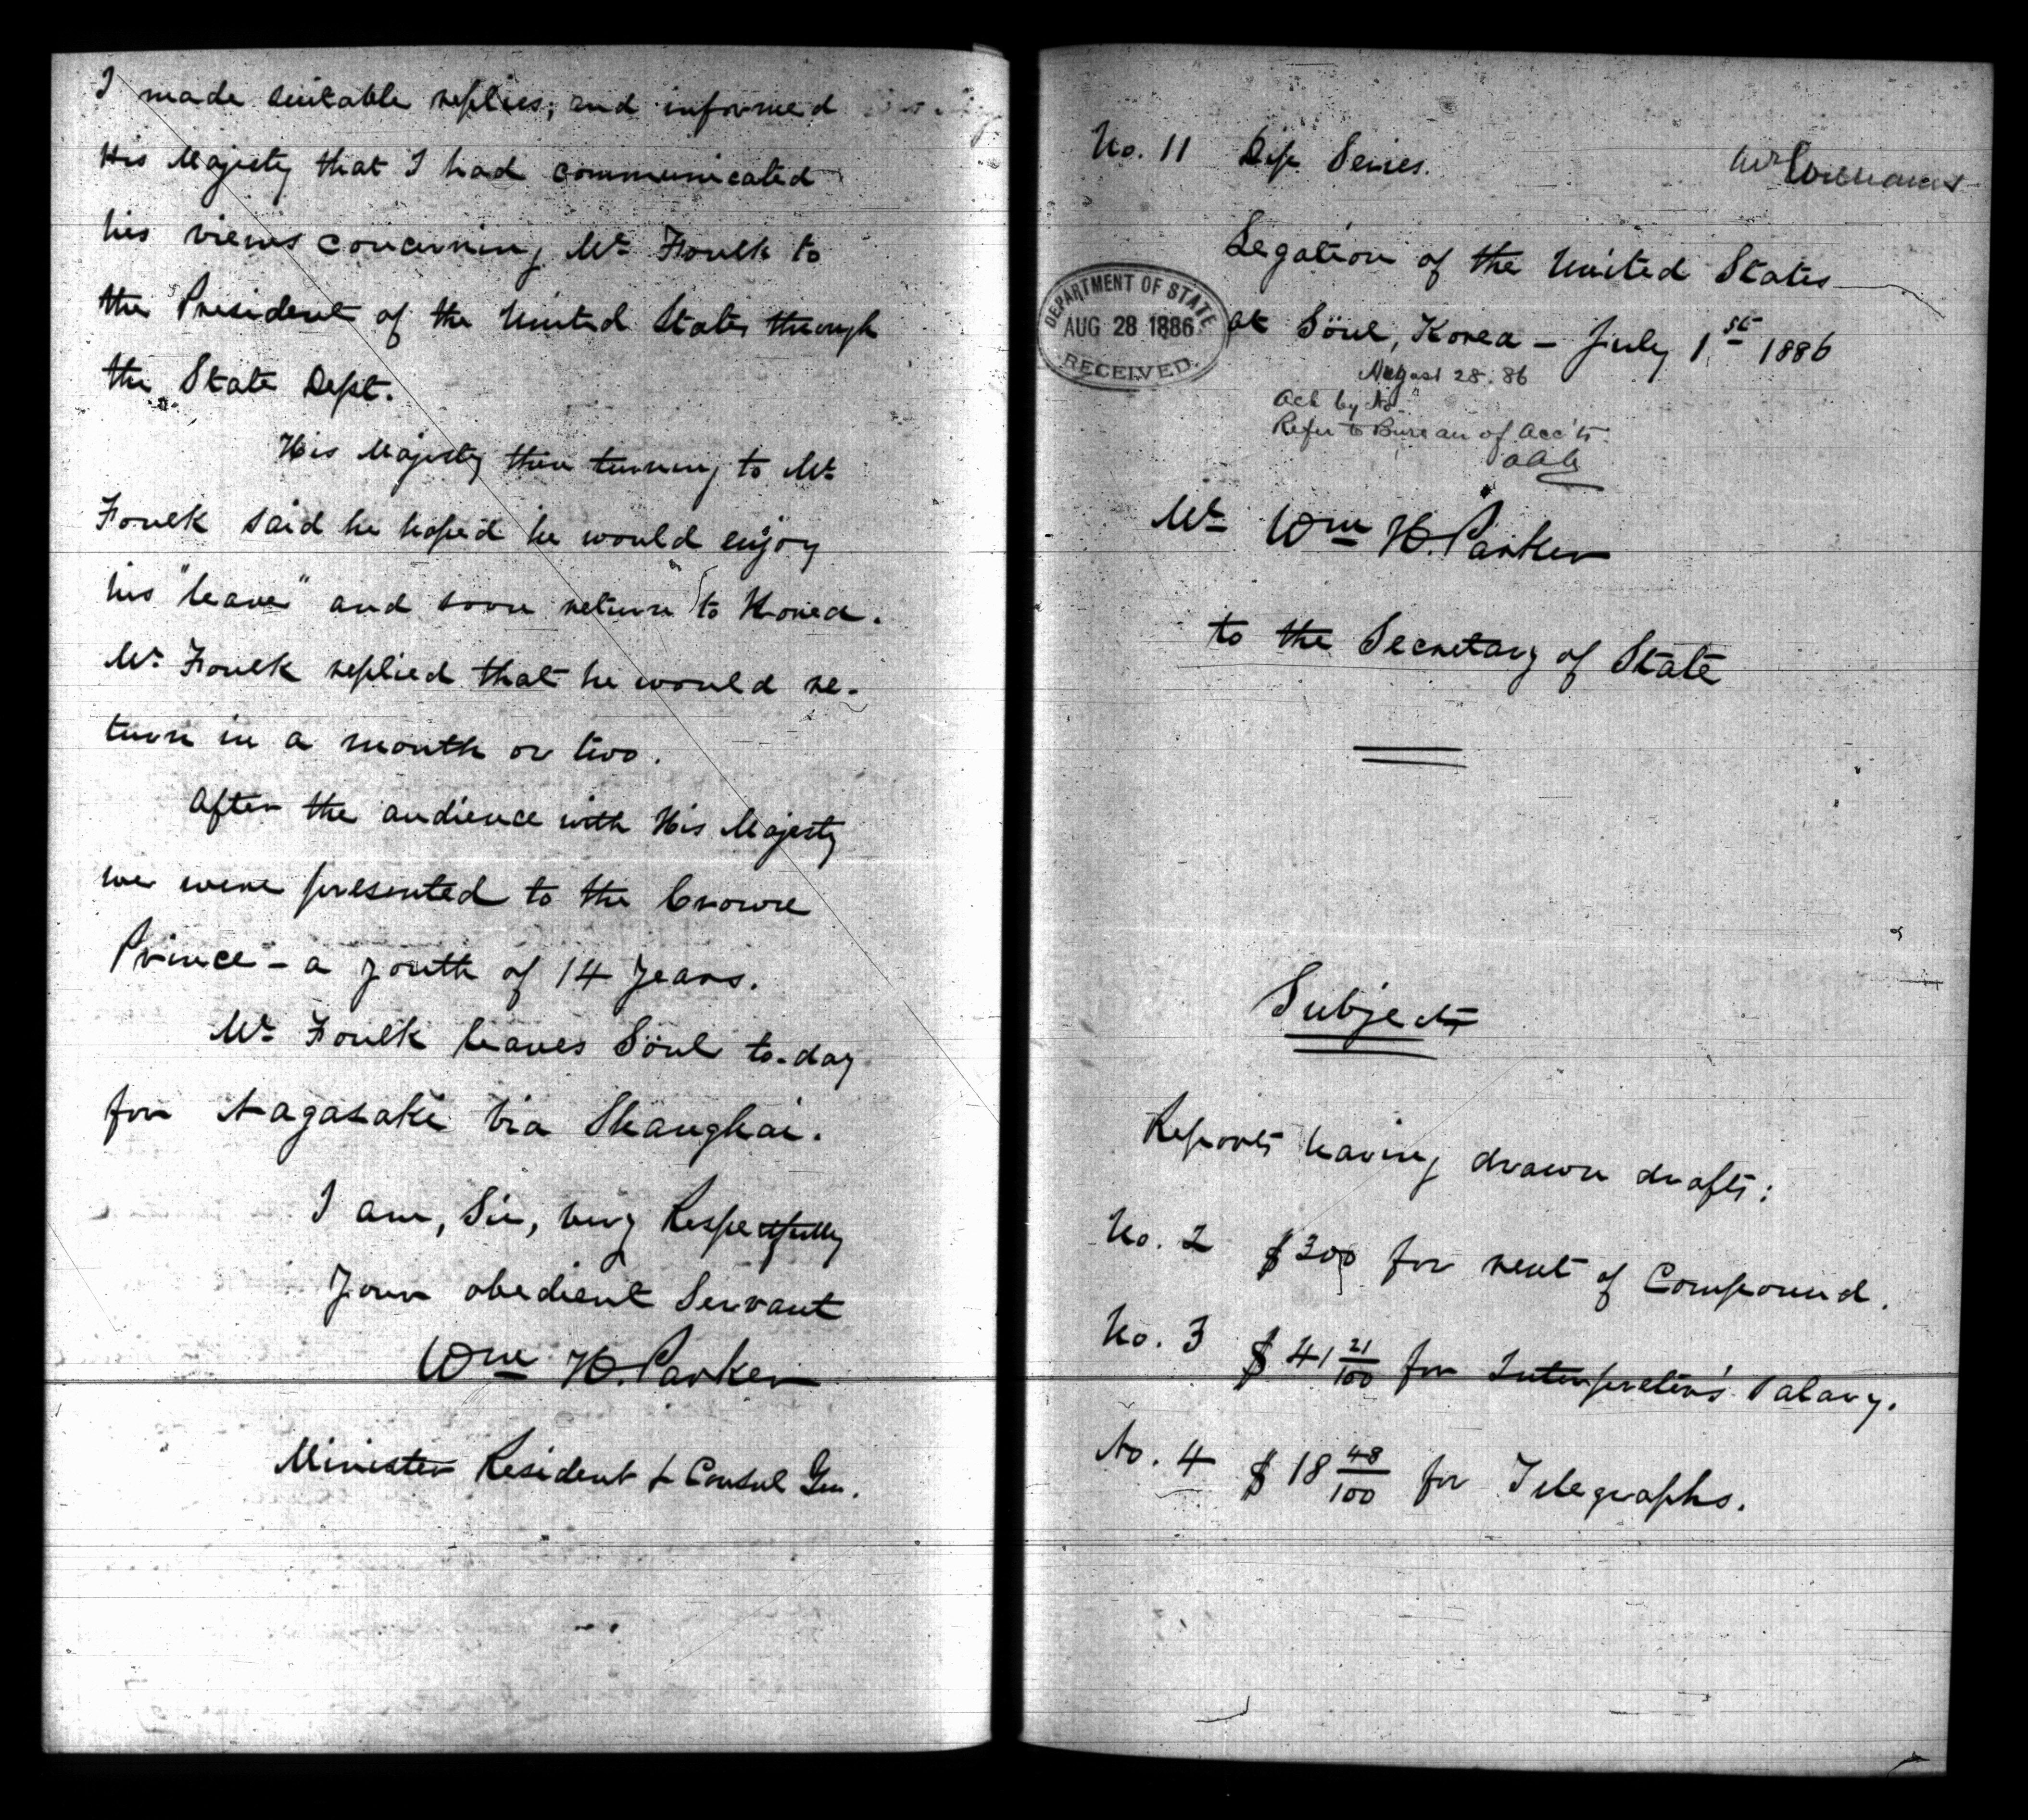 I made suitable replies, and informed
His Majesty that I had communicated
his views concerning Mr Foulk to
the President of the United States through
the State Dept.
His Majesty then turning to Mr
Foulk said he hoped he would enjoy
his "leave" and soon return to Korea.
Mr. Foulk replied that he would re-
turn in a month or two.
After the audience with His Majesty
we were presented to the Crown
Prince - a youth of 14 years.
Mr Foulk leaves Söul to-day
for Nagasaki via Shanghai.
I am, Sir, very Respectfully
Your obedient Servant
Wm H. Parker
Minister Resident & Consul Gen.
No. 11 Dip. Series.
Legation of the United States
DEPARTMENT OF STATE
AUG 28 1886
RECEIVED
at Söul, Korea - July 1st 1886
August 28. 86
Ack by No
Refer to Bureau of Acc'ts.
AAA
Mr Wm H. Parker
to the Secretary of State
Subject
Reports having drawn drafts:
No. 2 $300 for rent of Compound.
No. 3 $41 21/100 for Interpreter's Salary.
No. 4 $18 48/100 for Telegraphs.